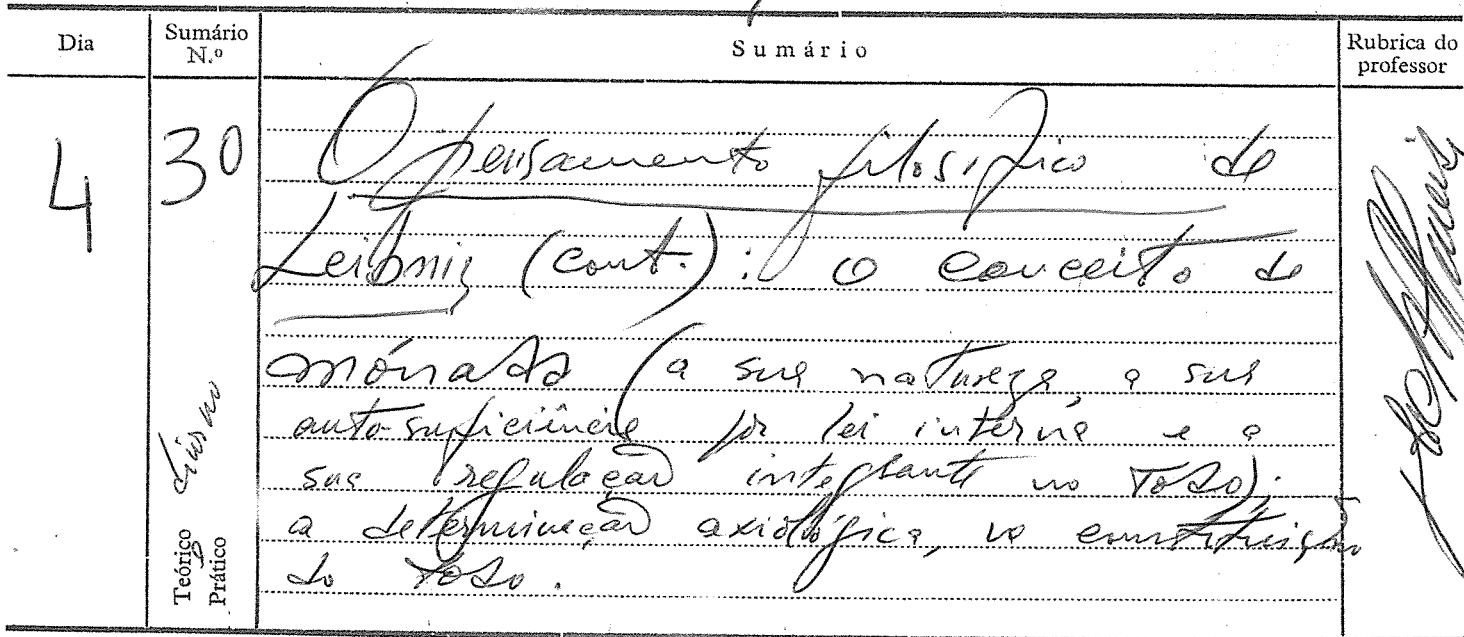 Dia
Sumário N.º
Sumário
Rubrica do professor
4
30
O pensamento filosófico de
Leibniz (cont.): o conceito de
mónada (a sua natureza, a sua
auto-suficiência por lei interna e a
sua regulação integrante no Todo);
a determinação axiológica, na constituição
do Todo.
Teórico
Prático